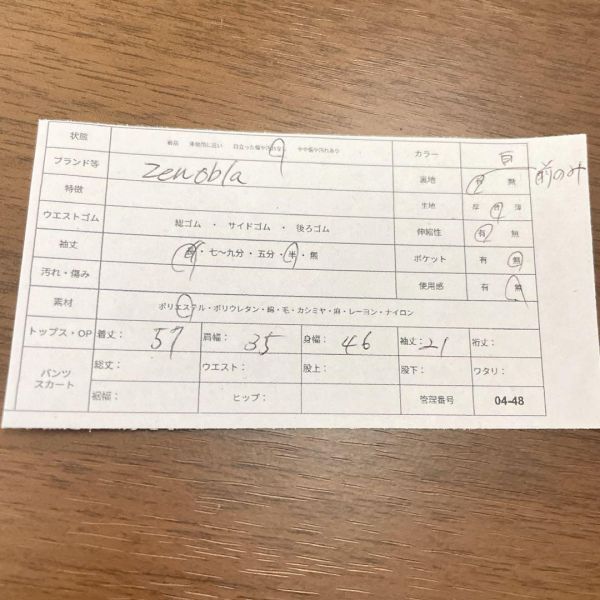 状態 新品 未使用に近い 目立った傷や汚れなし やや傷や汚れあり カラー 白
ブランド等 zenobla 裏地 有 無 前のみ
特徴 生地 厚 普 薄
ウエストゴム 総ゴム ・ サイドゴム ・ 後ろゴム 伸縮性 有 ・ 無
袖丈 長・七〜九分・五分・半・無 ポケット 有 ・ 無
汚れ・傷み 使用感 有 ・ 無
素材 ポリエステル・ポリウレタン・綿・毛・カシミヤ・麻・レーヨン・ナイロン
トップス・OP 着丈: 57 肩幅: 35 身幅: 46 袖丈: 21 裄丈:
パンツ スカート 総丈: ウエスト: 股上: 股下: ワタリ:
裾幅: ヒップ: 管理番号 04-48